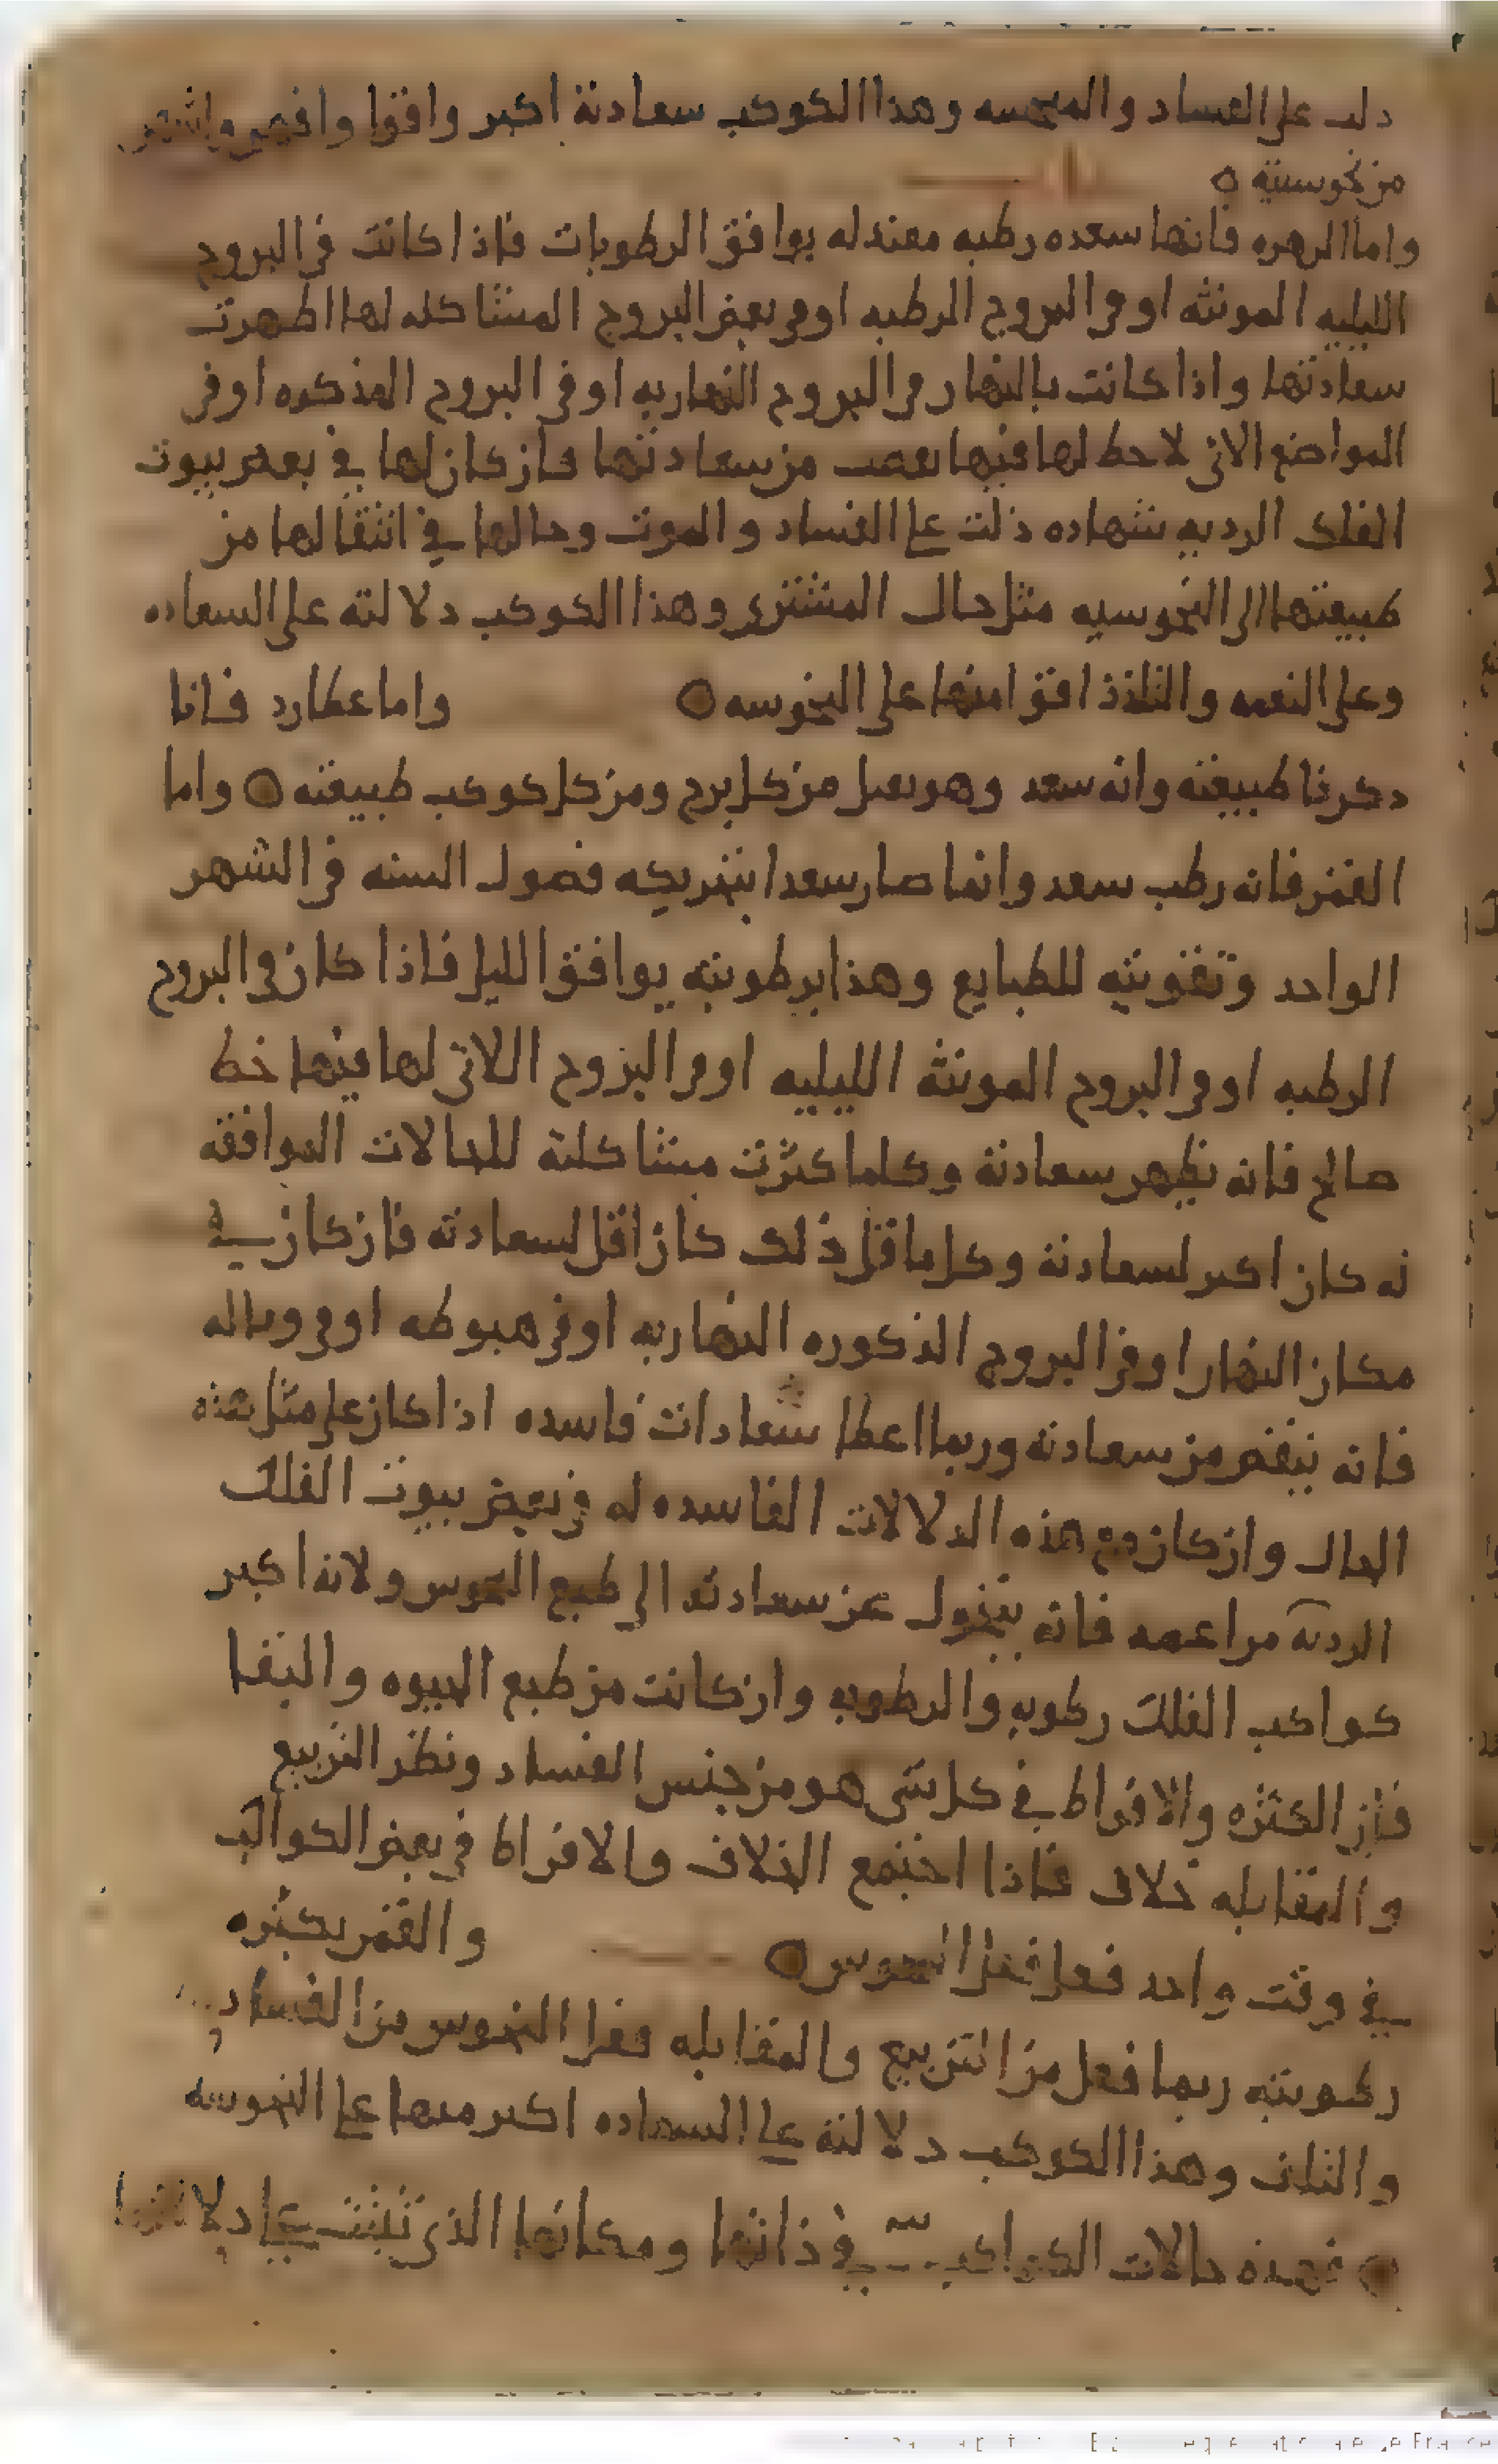 دلت على الفساد والمنحسه وهذا الكوكب سعادته اكبر واقوا وافهر واشهر
من نحوسته ه
واما الزهره فانها سعده رطبه معتدله يوافق الرطوبات فاذا كانت في البروج
الليليه المونثه او في البروج الرطبه او في بعض البروج المشاكله لها اظهرت
سعادتها واذا كانت بالنهار في البروج النهاريه او في البروج المذكره او في
المواضع الاتى لا حظ لها فيها نقصت من سعادتها فان كان لها في بعض بيوت
الفلك الرديه شهاده دلت على الفساد والموت وحالها في انتقالها من
طبيعتها الى النحوسيه مثل حال المشترى وهذا الكوكب دلالته على السعاده
وعلى النعمه والتلذذ اقوا منها على النحوسه ه واما عطارد فانا
ذكرنا طبيعته وانه سعد وهو يقبل من كل برج ومن كل كوكب طبيعته ه واما
القمر فانه رطب سعد وانما صار سعدا بتحريكه فصول السنه في الشهر
الواحد وتقويته للطبايع وهذا برطوبته يوافق الليل فاذا كان في البروج
الرطبه او في البروج المونثه الليليه او في البروج اللاتى لها فيها حظ
صالح فانه تظهر سعادته وكلما كثرت مشاكلته للحالات الموافقه
له كان اكبر لسعادته وكل ما قل ذلك كان اقل لسعادته فان كان في
مكان النهار او في البروج الذكوره النهاريه او في هبوطه او في وباله
فانه ينقص من سعادته وربما اعطا سعادات فاسده اذا كان على مثل هذه
الحال وان كان مع هذه الدلالات الفاسده له في بعض بيوت الفلك
الرديه مزاعمه فانه يتحول عن سعادته الى طبع النحوس ولانه اكبر
كواكب الفلك رطوبه والرطوبه وان كانت من طبع الحيوه والبقا
فان الكثره والافراط في كل شى هو من جنس الفساد ونظر التربيع
والمقابله خلاف فاذا اجتمع الخلاف والافراط في بعض الكواكب
في وقت واحد فعل فعل النحوس ه والقمر بكثره
رطوبته ربما فعل من التربيع والمقابله فعل النحوس من الفساد
والتلف وهذا الكوكب دلالته على السعاده اكبر منها على النحوسه
ه فهذه حالات الكواكب في ذاتها ومكانها الذى تثبت على دلالاتها